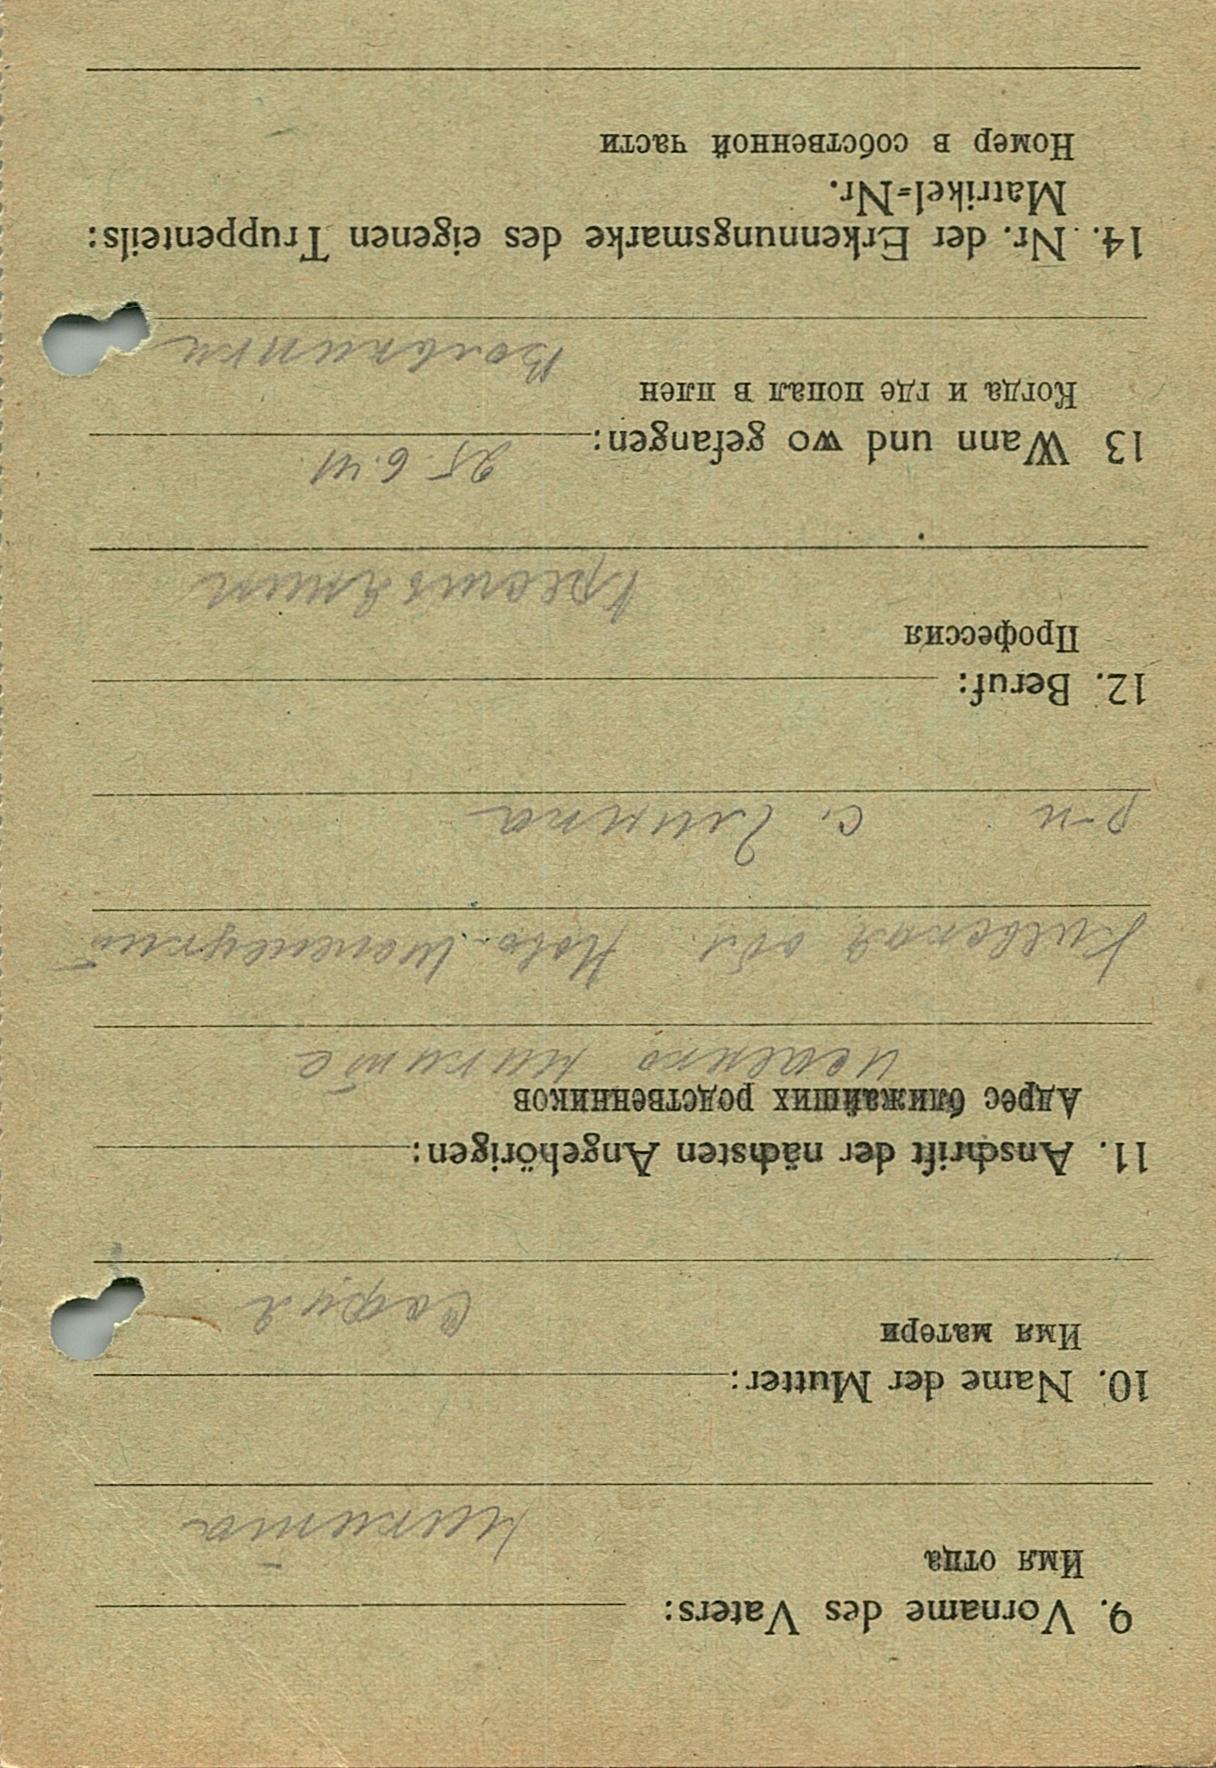 9. Vorname des Vaters:
Имя отца
Никита
10. Name der Mutter:
Имя матери
София
11. Anschrift der nächsten Angehörigen:
Адрес ближайших родственников
Никите
Киевская обл. Ново-
р-н с. Глинка
12. Beruf:
Профессия
Крестьянин
13 Wann und wo gefangen:
25.6.41
Когда и где попал в плен
14. Nr. der Erkennungsmarke des eigenen Truppenteils:
Matrikel=Nr.
Номер в собственной части